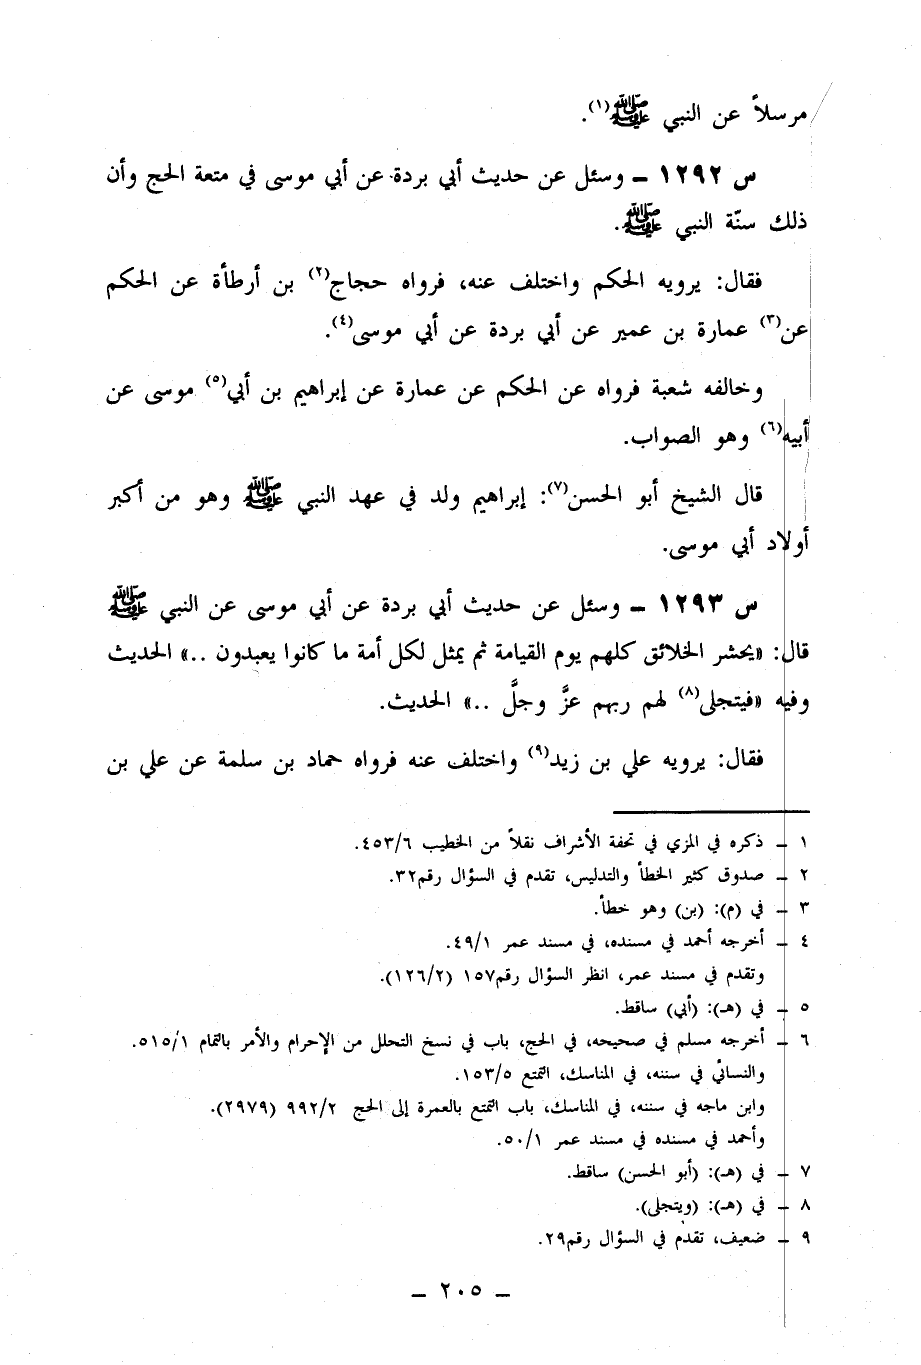 مرسلاً عن النبي ﷺ(١).
س ١٢٩٢ ـ وسئل عن حديث أبي بردة عن أبي موسى في متعة الحج وأن
ذلك سنّة النبي ﷺ.
فقال: يرويه الحكم واختلف عنه، فرواه حجاج(٢) بن أرطأة عن الحكم
عن(٣) عمارة بن عمير عن أبي بردة عن أبي موسى(٤).
وخالفه شعبة فرواه عن الحكم عن عمارة عن إبراهيم بن أبي(٥) موسى عن
أبيه(٦) وهو الصواب.
قال الشيخ أبو الحسن(٧): إبراهيم ولد في عهد النبي ﷺ وهو من أكبر
أولاد أبي موسى.
س ١٢٩٣ ـ وسئل عن حديث أبي بردة عن أبي موسى عن النبي ﷺ
قال: «يحشر الخلائق كلهم يوم القيامة ثم يمثل لكل أمة ما كانوا يعبدون ..» الحديث
وفيه «فيتجلى(٨) لهم ربهم عزَّ وجلَّ ..» الحديث.
فقال: يرويه علي بن زيد(٩) واختلف عنه فرواه حماد بن سلمة عن علي بن
١ ـ ذكره في المزي في تحفة الأشراف نقلاً من الخطيب ٤٥٣/٦.
٢ ـ صدوق كثير الخطأ والتدليس، تقدم في السؤال رقم٣٢.
٣ ـ في (م): (بن) وهو خطأ.
٤ ـ أخرجه أحمد في مسنده، في مسند عمر ٤٩/١.
وتقدم في مسند عمر، انظر السؤال رقم١٥٧ (١٢٦/٢).
٥ ـ في (هـ): (أبي) ساقط.
٦ ـ أخرجه مسلم في صحيحه، في الحج، باب في نسخ التحلل من الإحرام والأمر بالتمام ٥١٥/١.
والنسائي في سننه، في المناسك، التمتع ١٥٣/٥.
وابن ماجه في سننه، في المناسك، باب التمتع بالعمرة إلى الحج ٩٩٢/٢ (٢٩٧٩).
وأحمد في مسنده في مسند عمر ٥٠/١.
٧ ـ في (هـ): (أبو الحسن) ساقط.
٨ ـ في (هـ): (ويتجلى).
٩ ـ ضعيف، تقدم في السؤال رقم٢٩.
ـ ٢٠٥ ـ